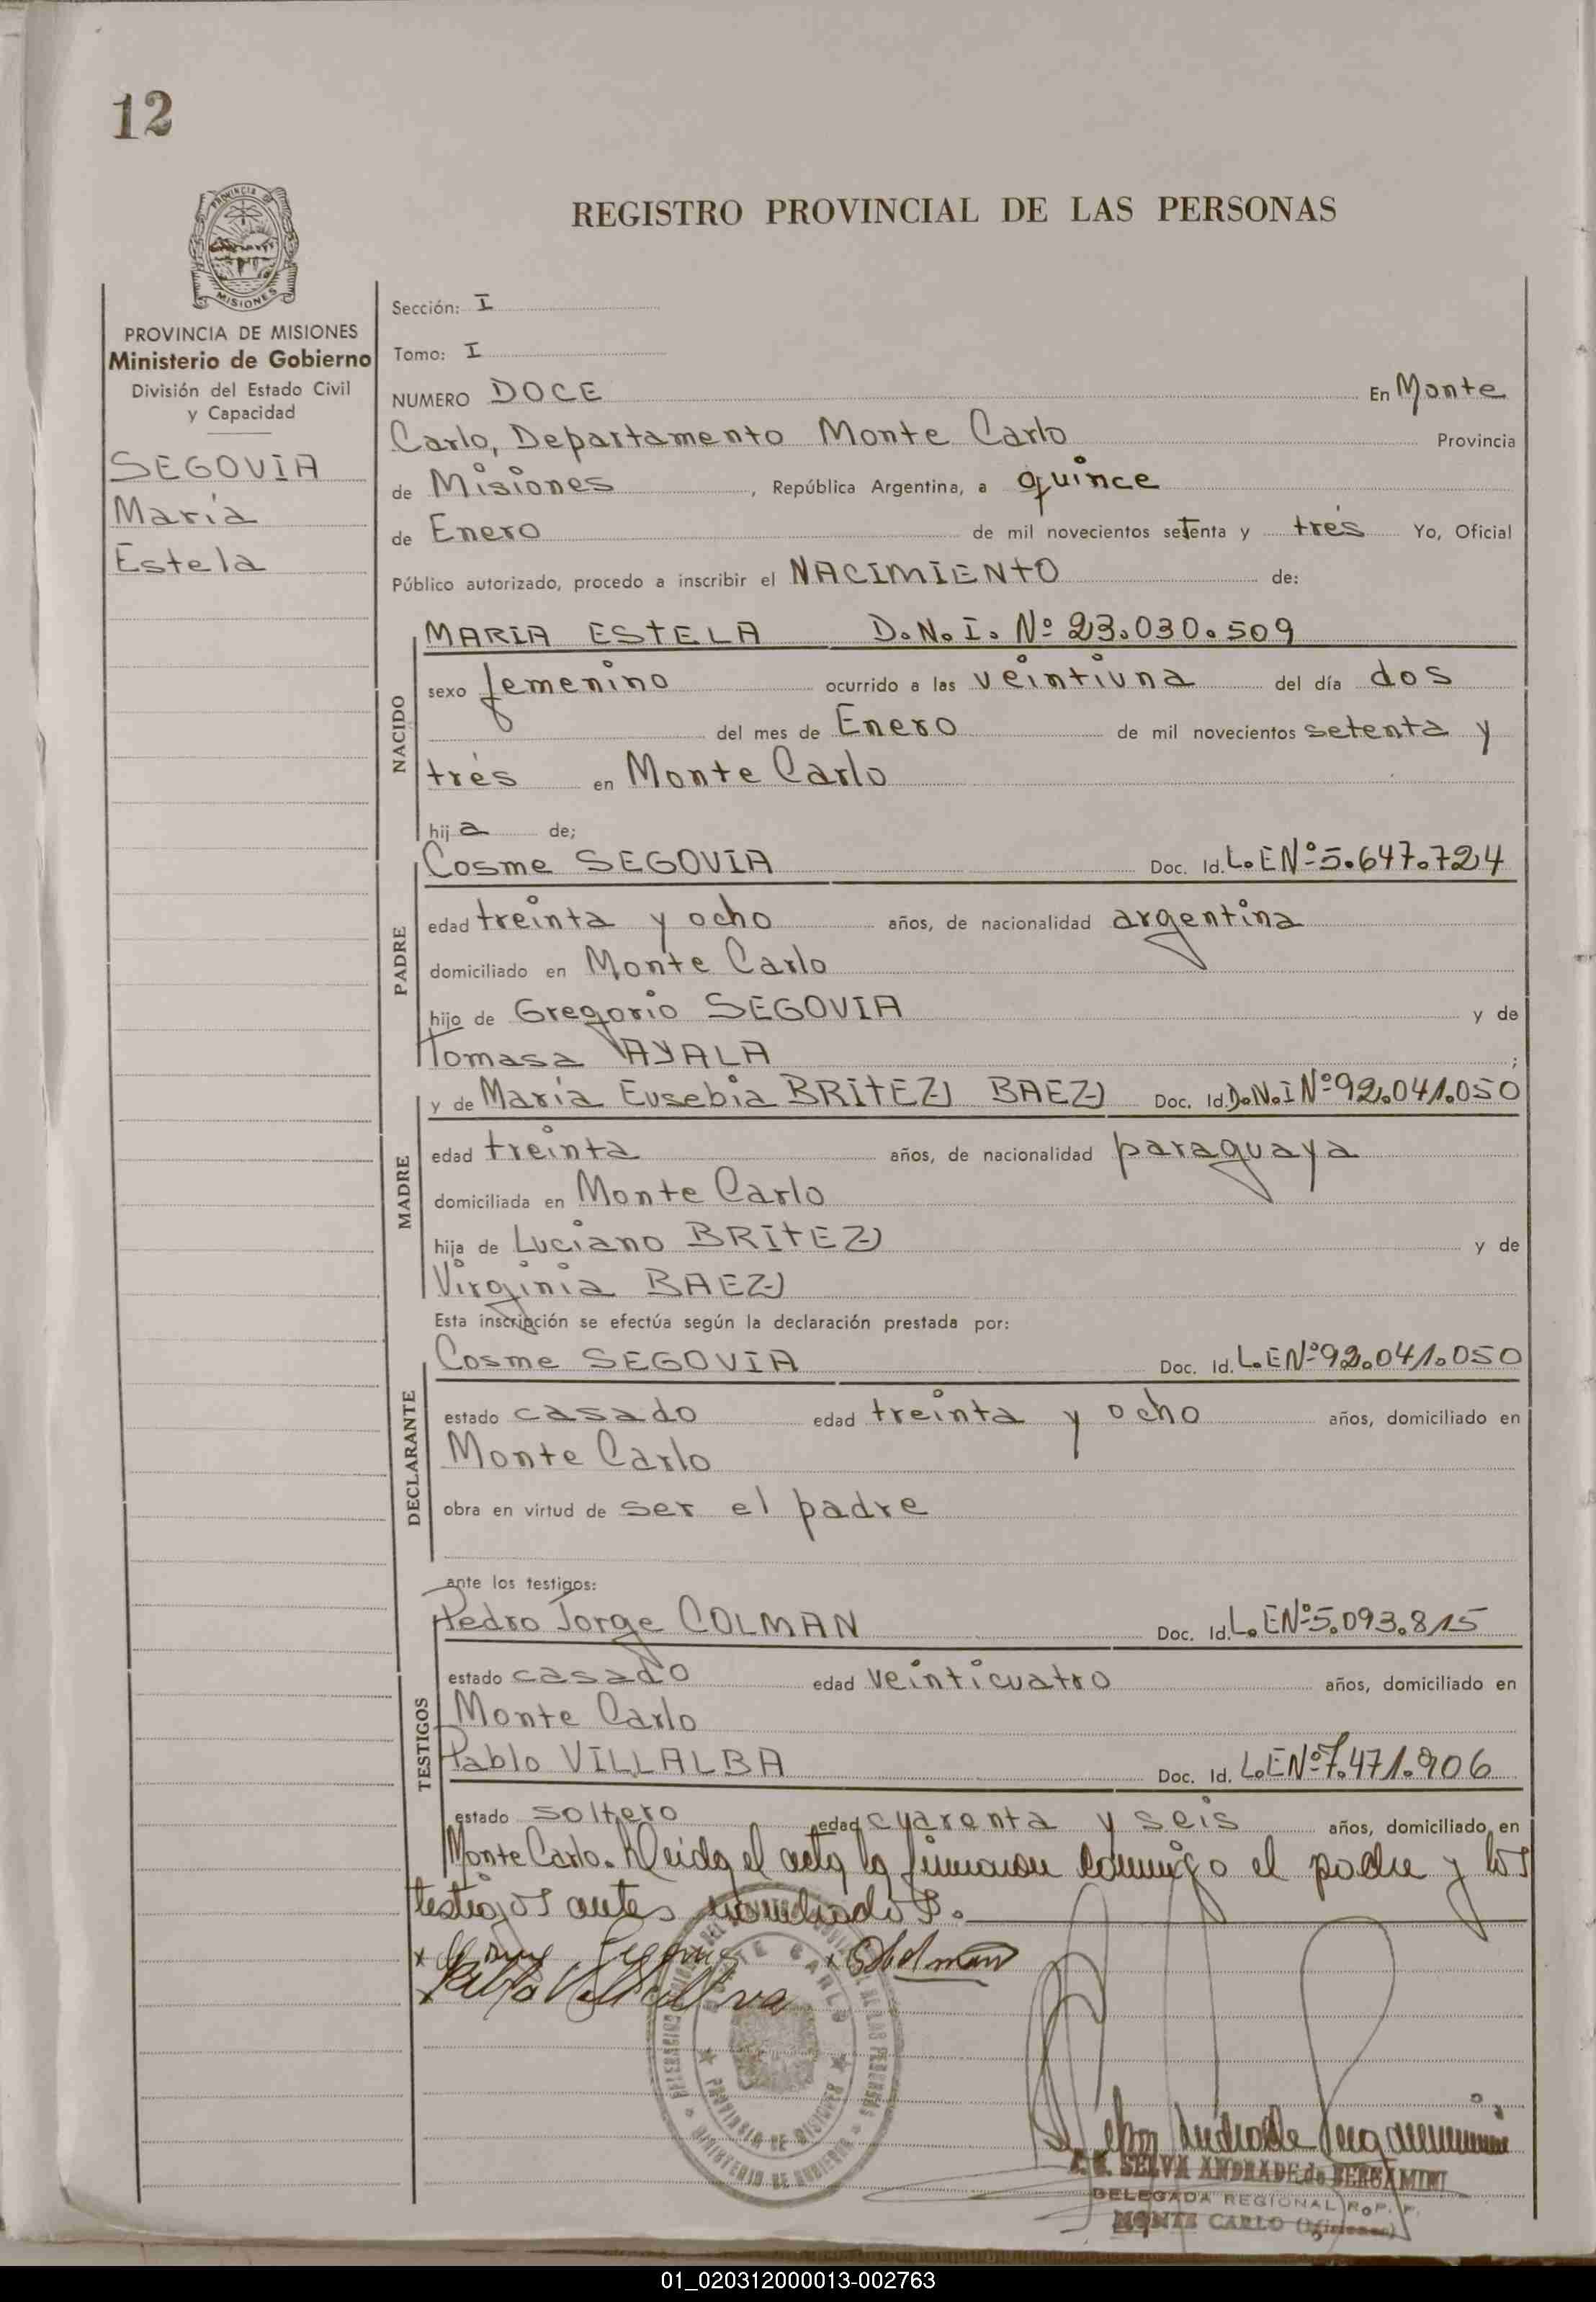 12
PROVINCIA DE
MISIONES
REGISTRO PROVINCIAL DE LAS PERSONAS
PROVINCIA DE MISIONES
Ministerio de Gobierno
División del Estado Civil
y Capacidad
SEGOVIA
María
Estela
Sección: I
Tomo: I
NUMERO DOCE En Monte
Carlo, Departamento Monte Carlo Provincia
de Misiones, República Argentina, a quince
de Enero de mil novecientos setenta y tres Yo, Oficial
Público autorizado, procedo a inscribir el NACIMIENTO de:
NACIDO
MARIA ESTELA D.N.I. Nº 23.030.509
sexo femenino ocurrido a las veintiuna del día dos
del mes de Enero de mil novecientos setenta y
trés en Monte Carlo
hija de;
PADRE
Cosme SEGOVIA Doc. Id. L.E Nº 5.647.724
edad treinta y ocho años, de nacionalidad argentina
domiciliado en Monte Carlo
hijo de Gregorio SEGOVIA y de
Tomasa AYALA ;
MADRE
y de María Eusebia BRITEZ BAEZ Doc. Id. D.N.I Nº 92.041.050
edad treinta años, de nacionalidad paraguaya
domiciliada en Monte Carlo
hija de Luciano BRITEZ y de
Virginia BAEZ
Esta inscripción se efectúa según la declaración prestada por:
DECLARANTE
Cosme SEGOVIA Doc. Id. L.E Nº 92.041.050
estado casado edad treinta y ocho años, domiciliado en
Monte Carlo
obra en virtud de ser el padre
ante los testigos:
TESTIGOS
Pedro Jorge COLMAN Doc. Id. L.E Nº 5.093.815
estado casado edad veinticuatro años, domiciliado en
Monte Carlo
Pablo VILLALBA Doc. Id. L.E Nº 7.471.906
estado soltero edad cuarenta y seis años, domiciliado en
Monte Carlo. Leida el acta la firmaron conmigo el padre y los
testigos antes nombrados.
MONTE CARLO
PROVINCIA DE MISIONES
MINISTERIO DE GOBIERNO
SELVA ANDRADE de BERGAMINI
DELEGADA REGIONAL R. P. P.
MONTE CARLO (Misiones)
01_020312000013-002763